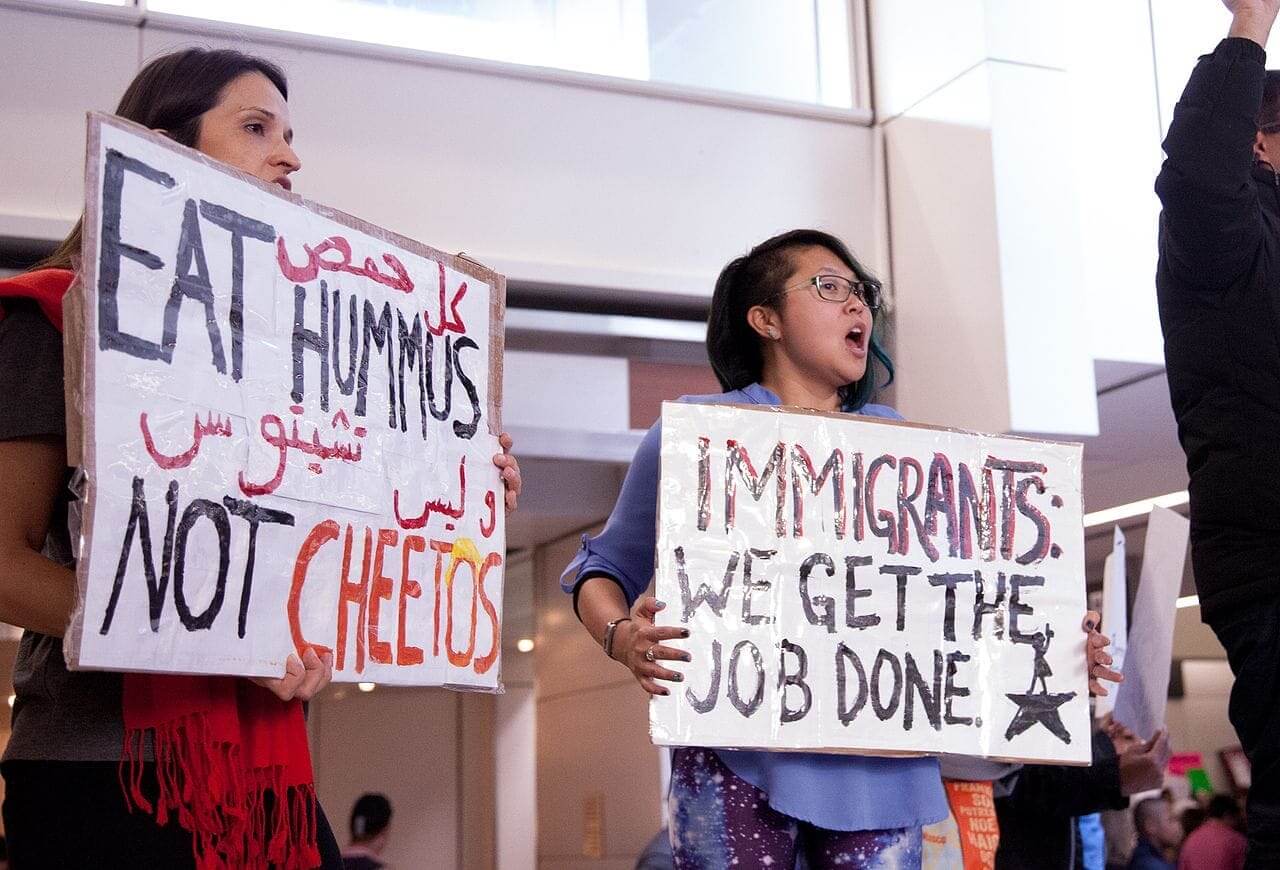 EAT كل حمص
HUMMUS
و ليس
تشيتوس
NOT CHEETOS
IMMIGRANTS:
WE GET THE
JOB DONE.